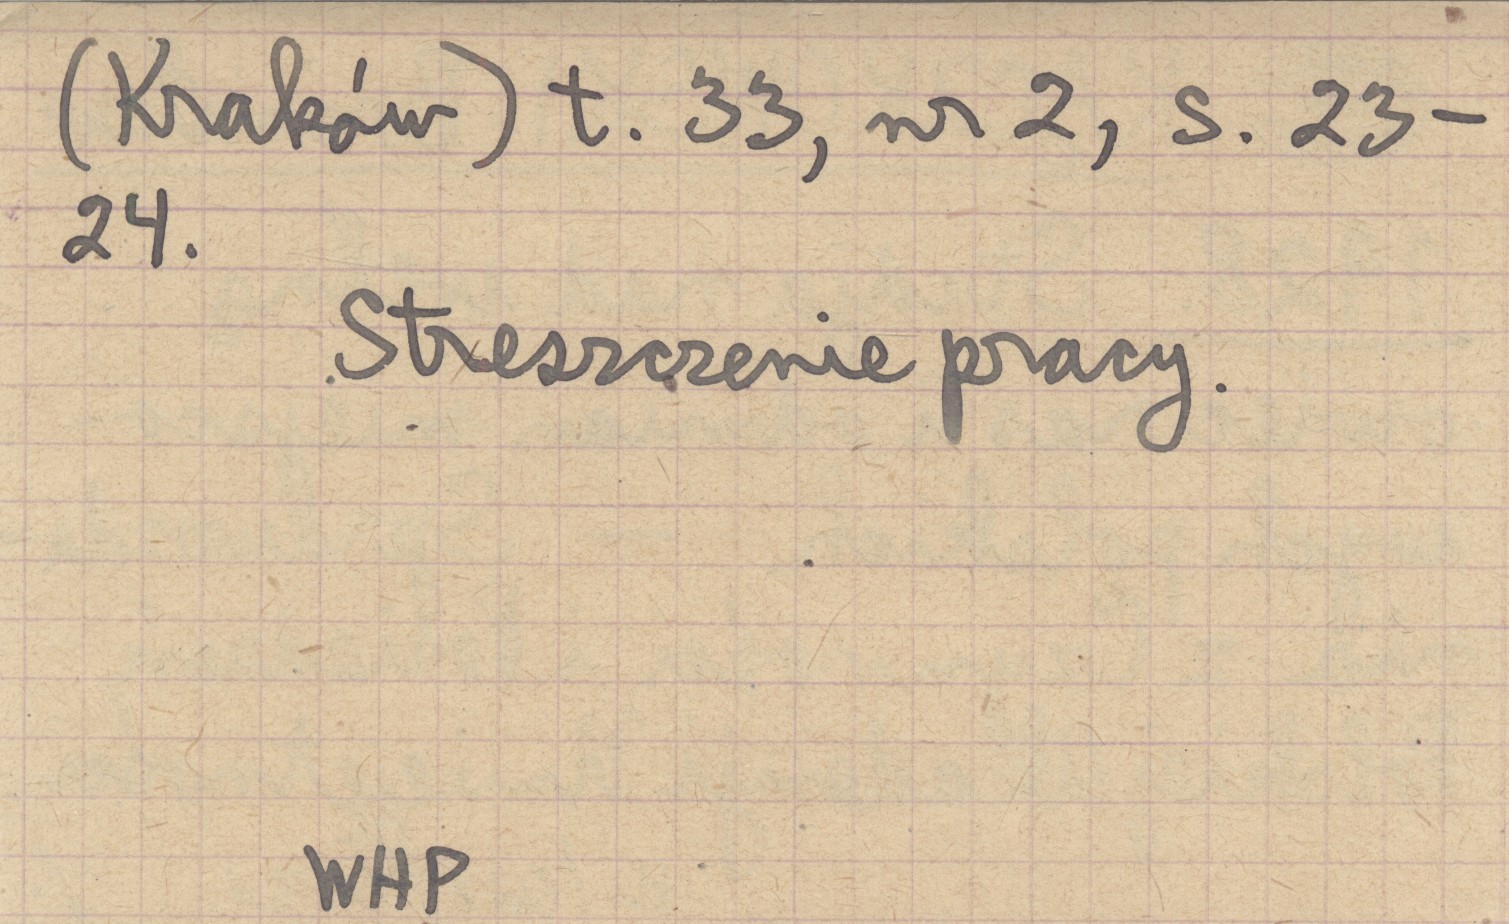 (Kraków) t. 33, nr 2, s. 23-
24.
Streszczenie pracy.
WHP